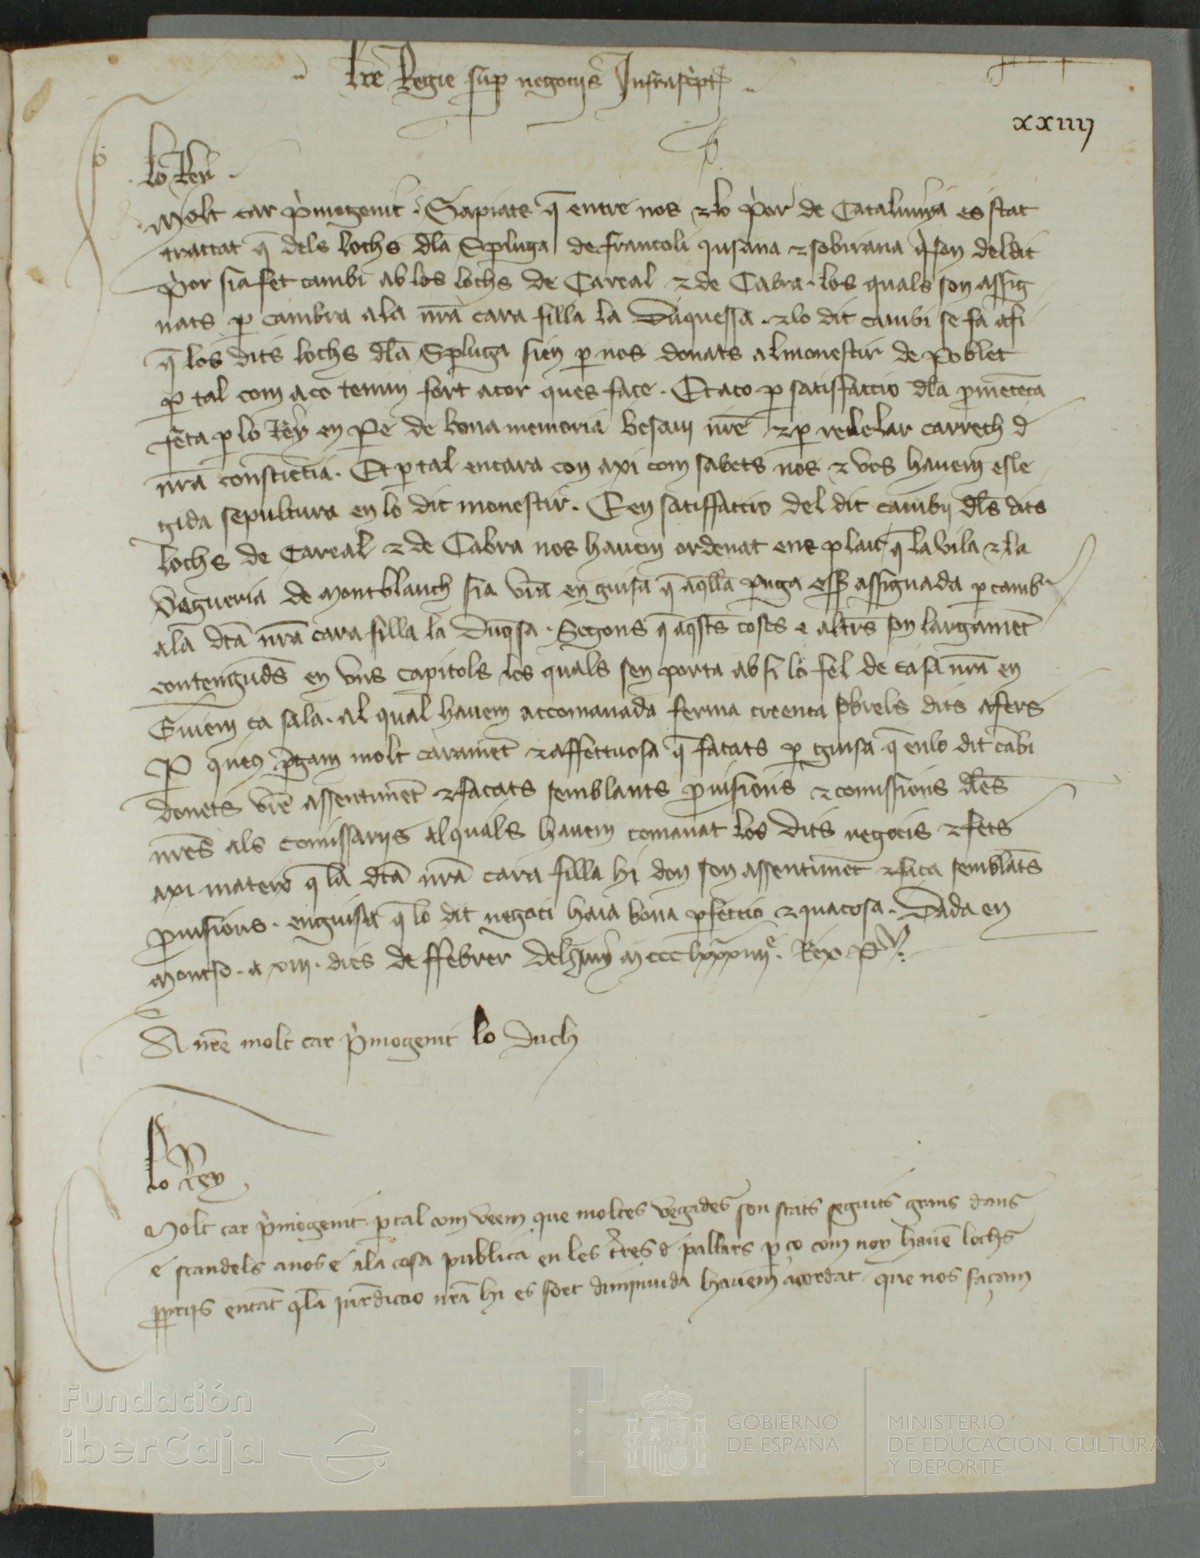 lre Regie sup negocijs Infrascpt
xxiiij
Lo Rey
Molt car pmogenit. Sapiats q entre nos e lo pior de Catalunya es stat
tractat q dels lochs dla Spluga de francoli jusana e sobirana q son del dit
pior sia fet cambi ab los lochs de Careal e de Cabra. los quals son assig
nats p cambra a la nra cara filla la Duquessa. e lo dit cambi se fa afi
q los dits lochs dla Spluga sien p nos donats al monestir de Poblet
p tal com aço tenim fort a cor ques faça. Et aço p satisfaccio dla
feta p lo Rey en Pe de bona memoria besavi nre e p relevar carrech d
nra consciencia. Et p tal encara con axi com sabets nos e vos havem esle
gida sepultura en lo dit monestir. E en satisffaccio del dit cambij dls dits
lochs de Careal e de Cabra nos havem ordenat ens plau q la vila e la
Vegueria de Montblanch sia en guisa q aqlla puga esser assignada p cambr
a la dta nra cara filla la Duqsa. Segons q aqsts coses e altrs son largamet
contenguds en uns capitols los quals sen porta ab si lo fel de casa nra en
ça sala. al qual havem accomanada ferma creença sobrels dits afers
P queus pgam molt caramet e affectuosa q façats p guisa q en lo dit cabi
donets vre assentimet e façats semblants pvisions e comissions dles
nres als comissaris als quals havem comanat los dits negocis e fets
axi mateix q la dta nra cara filla hi don son assentimet e faça semblats
pvisions. en guisa q lo dit negoci haia bona pfeccio e graciosa. Dada en
Montso. a viij. dies de ffebrer del any M ccc lxxxiiij. Rex P
A nre molt car pmogenit lo Duch
Lo Rey
Molt car pmogenit. p tal com veem que moltes vegides son stats seguits grans dans
e scandels a nos e a la cosa publica en les tres d pallars p ço com noy have lochs
ppris entat q la jurdiccio nra hi es fort diminuida havem acordat que nos façam
Fundación
iberCaja
GOBIERNO
DE ESPAÑA
MINISTERIO
DE EDUCACIÓN, CULTURA
Y DEPORTE